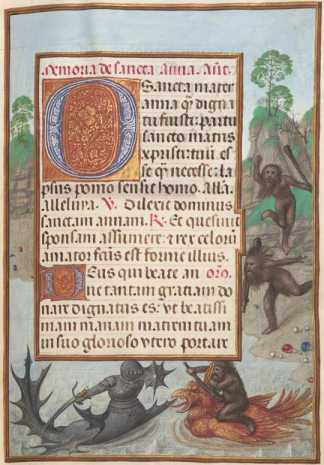 Memoria de sancta Anna. Añt.
O Sancta mater
anna q̄ digna
tu fuisti: partu
sancto matris
xpristi tui es
se q̄ necesse: la
plus pomo sensit homo. Alla.
alleluia. V. Dilexit dominus
sanctam annam. R. Et quesiuit
sponsam assumere: z rex celorū
amator fc̄us est forme illius.
Deus qui beate an orō.
ne tantam gratiam do
nare dignatus es: vt beatissi
mam mariam matrem tuam in
suo glorioso vtero portare